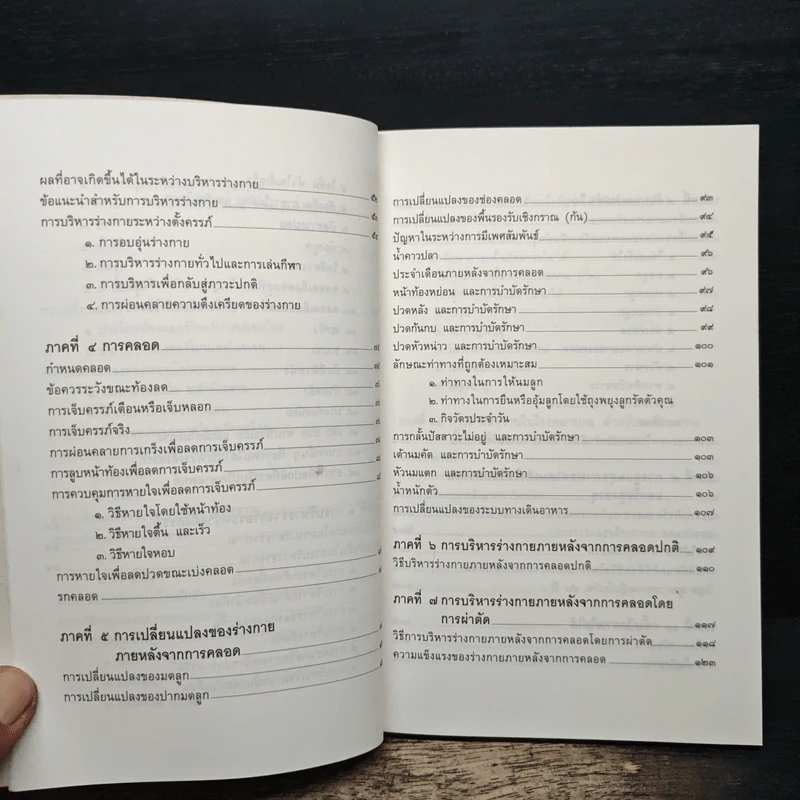 ผลที่อาจเกิดขึ้นได้ในระหว่างบริหารร่างกาย
ข้อแนะนำสำหรับการบริหารร่างกาย
การบริหารร่างกายระหว่างตั้งครรภ์
๑. การอบอุ่นร่างกาย
๒. การบริหารร่างกายทั่วไปและการเล่นกีฬา
๓. การบริหารเพื่อกลับสู่ภาวะปกติ
๔. การผ่อนคลายความตึงเครียดของร่างกาย
ภาคที่ ๔ การคลอด
กำหนดคลอด
ข้อควรระวังขณะท้องลด
การเจ็บครรภ์เตือนหรือเจ็บหลอก
การเจ็บครรภ์จริง
การผ่อนคลายการเกร็งเพื่อลดการเจ็บครรภ์
การลูบหน้าท้องเพื่อลดการเจ็บครรภ์
การควบคุมการหายใจเพื่อลดการเจ็บครรภ์
๑. วิธีหายใจโดยใช้หน้าท้อง
๒. วิธีหายใจตื้น และเร็ว
๓. วิธีหายใจหอบ
การหายใจเพื่อลดปวดขณะเบ่งคลอด
รกคลอด
ภาคที่ ๕ การเปลี่ยนแปลงของร่างกาย
ภายหลังจากการคลอด
การเปลี่ยนแปลงของมดลูก
การเปลี่ยนแปลงของปากมดลูก
การเปลี่ยนแปลงของช่องคลอด ๙๓
การเปลี่ยนแปลงของพื้นรองรับเชิงกราน (ก้น) ๙๔
ปัญหาในระหว่างการมีเพศสัมพันธ์ ๙๕
น้ำคาวปลา ๙๖
ประจำเดือนภายหลังจากการคลอด ๙๖
หน้าท้องหย่อน และการบำบัดรักษา ๙๗
ปวดหลัง และการบำบัดรักษา ๙๘
ปวดก้นกบ และการบำบัดรักษา ๙๙
ปวดหัวหน่าว และการบำบัดรักษา ๑๐๐
ลักษณะท่าทางที่ถูกต้องเหมาะสม ๑๐๑
๑. ท่าทางในการให้นมลูก
๒. ท่าทางในการยืนหรืออุ้มลูกโดยใช้ถุงพยุงลูกรัดตัวคุณ
๓. กิจวัตรประจำวัน
การกลั้นปัสสาวะไม่อยู่ และการบำบัดรักษา ๑๐๓
เต้านมคัด และการบำบัดรักษา ๑๐๓
หัวนมแตก และการบำบัดรักษา ๑๐๖
น้ำหนักตัว ๑๐๖
การเปลี่ยนแปลงของระบบทางเดินอาหาร ๑๐๗
ภาคที่ ๖ การบริหารร่างกายภายหลังจากการคลอดปกติ ๑๐๙
วิธีบริหารร่างกายภายหลังจากการคลอดปกติ ๑๑๐
ภาคที่ ๗ การบริหารร่างกายภายหลังจากการคลอดโดย
การผ่าตัด ๑๑๗
วิธีการบริหารร่างกายภายหลังจากการคลอดโดยการผ่าตัด ๑๑๘
ความแข็งแรงของร่างกายภายหลังจากการคลอด ๑๒๓